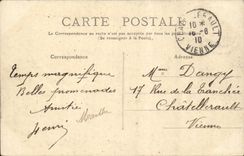 CARTE POSTALE
La Correspondance au recto n'est pas acceptée par tous les pays étrangers
(Se renseigner à la Poste)
Correspondance
Temps magnifique
Belles promenades
Amitié
Henri
Mme Dangy
17 Rue de la Tranchée
Châtellerault
Vienne
CHATELLERAULT
VIENNE